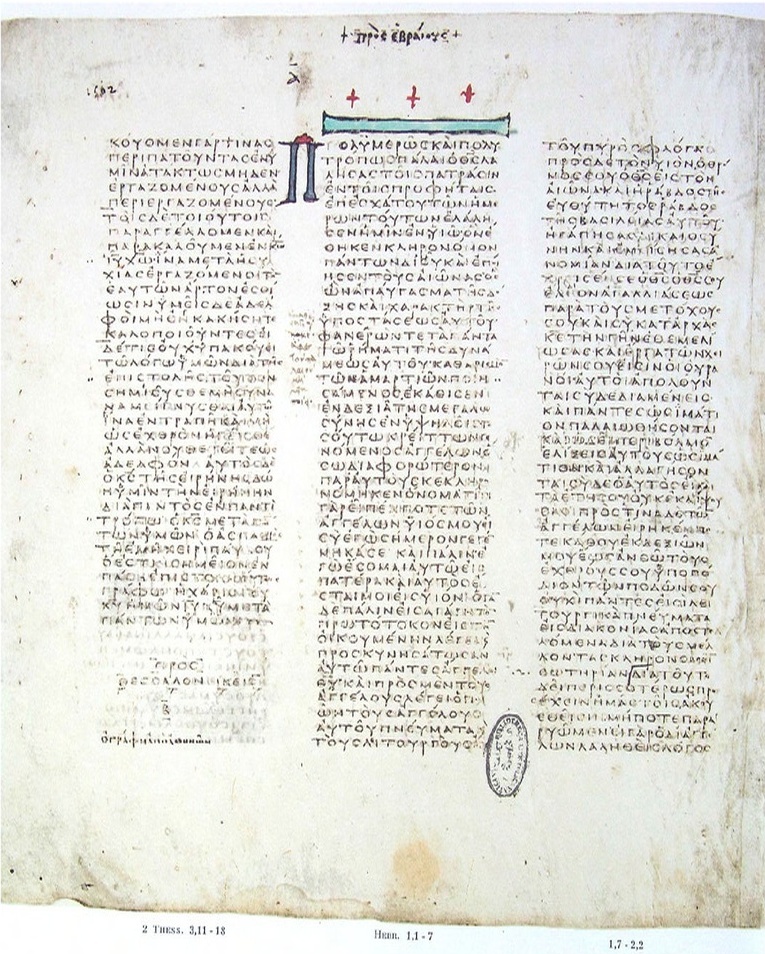 + πρὸς ἑβραίους +
ΚΟΥΟΜΕΝΓΑΡΤΙΝΑϹ
ΠΕΡΙΠΑΤΟΥΝΤΑϹΕΝΥ
ΜΙΝΑΤΑΚΤΩϹΜΗΔΕΝ
ΕΡΓΑΖΟΜΕΝΟΥϹΑΛΛΑ
ΠΕΡΙΕΡΓΑΖΟΜΕΝΟΥϹ
ΤΟΙϹΔΕΤΟΙΟΥΤΟΙϹ
ΠΑΡΑΓΓΕΛΛΟΜΕΝΚΑΙ
ΠΑΡΑΚΑΛΟΥΜΕΝΕΝΚΩ
ΙΥΧΩΙΝΑΜΕΤΑΗϹΥ
ΧΙΑϹΕΡΓΑΖΟΜΕΝΟΙΤΟ
ΕΑΥΤΩΝΑΡΤΟΝΕϹΘΙ
ΩϹΙΝΥΜΕΙϹΔΕΑΔΕΛ
ΦΟΙΜΗΕΝΚΑΚΗϹΗΤΕ
ΚΑΛΟΠΟΙΟΥΝΤΕϹΕΙ
ΔΕΤΙϹΟΥΧΥΠΑΚΟΥΕΙ
ΤΩΛΟΓΩΥΜΩΝΔΙΑΤΗϹ
ΕΠΙϹΤΟΛΗϹΤΟΥΤΟΝ
ϹΗΜΙΟΥϹΘΕΜΗϹΥΝΑ
ΙΝΑΕΝΤΡΑΠΗΚΑΙΜΗ
ΩϹΕΧΘΡΟΝΗΓΕΙϹΘΕ
ΑΛΛΑΝΟΥΘΕΤΕΙΤΕΩϹ
ΑΔΕΛΦΟΝ ΑΥΤΟϹΔΕ
ΟΚϹΤΗϹΕΙΡΗΝΗϹΔΩ
ΗΥΜΙΝΤΗΝΕΙΡΗΝΗΝ
ΔΙΑΠΑΝΤΟϹΕΝΠΑΝΤΙ
ΤΡΟΠΩ ΟΚϹΜΕΤΑΠΑ
ΤΩΝΥΜΩΝ ΟΑϹΠΑϹ
ΤΗΕΜΗΧΕΙΡΙΠΑΥΛΟΥ
ΟΕϹΤΙΝϹΗΜΕΙΟΝΕΝ
ΠΑϹΗΕΠΙϹΤΟΛΗΟΥΤΩ
ΓΡΑΦΩΗΧΑΡΙϹΤΟΥΚΥ
ΧΥΗΜΩΝΙΥΜΕΤΑ
ΠΑΝΤΩΝΥΜΩΝ
ΠΡΟϹ
ΘΕϹϹΑΛΟΝΙΚΕΙϹ
Β
ΠΟΛΥΜΕΡΩϹΚΑΙΠΟΛΥ
ΤΡΟΠΩϹΠΑΛΑΙΟΘϹΛΑ
ΛΗϹΑϹΤΟΙϹΠΑΤΡΑϹΙΝ
ΕΝΤΟΙϹΠΡΟΦΗΤΑΙϹ
ΕΠΕϹΧΑΤΟΥΤΩΝΗΜΕ
ΡΩΝΤΟΥΤΩΝΕΛΑΛΗ
ϹΕΝΗΜΙΝΕΝΥΙΩΟΝΕ
ΘΗΚΕΝΚΛΗΡΟΝΟΜΟΝ
ΠΑΝΤΩΝΔΙΟΥΚΑΙΕΠΟΙ
ΗϹΕΝΤΟΥϹΑΙΩΝΑϹΟϹ
ΩΝΑΠΑΥΓΑϹΜΑΤΗϹΔΟ
ΞΗϹΚΑΙΧΑΡΑΚΤΗΡΤΗϹ
ΥΠΟϹΤΑϹΕΩϹΑΥΤΟΥ
ΦΑΝΕΡΩΝΤΕΤΑΠΑΝΤΑ
ΤΩΡΗΜΑΤΙΤΗϹΔΥΝΑ
ΜΕΩϹΑΥΤΟΥΚΑΘΑΡΙϹΜΟ
ΤΩΝΑΜΑΡΤΙΩΝΠΟΙΗ
ϹΑΜΕΝΟϹΕΚΑΘΙϹΕΝ
ΕΝΔΕΞΙΑΤΗϹΜΕΓΑΛΩ
ϹΥΝΗϹΕΝΥΨΗΛΟΙϹΤΟ
ϹΟΥΤΩΚΡΕΙΤΤΩΝΓΕ
ΝΟΜΕΝΟϹΑΓΓΕΛΩΝΟ
ϹΩΔΙΑΦΟΡΩΤΕΡΟΝ
ΠΑΡΑΥΤΟΥϹΚΕΚΛΗΡΟ
ΝΟΜΗΚΕΝΟΝΟΜΑΤΙΝΙ
ΓΑΡΕΙΠΕΝΠΟΤΕΤΩΝ
ΑΓΓΕΛΩΝΥΙΟϹΜΟΥΕΙ
ϹΥΕΓΩϹΗΜΕΡΟΝΓΕΓΕ
ΝΗΚΑϹΕ ΚΑΙΠΑΛΙΝΕ
ΓΩΕϹΟΜΑΙΑΥΤΩΕΙϹ
ΠΑΤΕΡΑΚΑΙΑΥΤΟϹΕ
ϹΤΑΙΜΟΙΕΙϹΥΙΟΝΟΤΑ
ΔΕΠΑΛΙΝΕΙϹΑΓΑΓΗΤΟΝ
ΠΡΩΤΟΤΟΚΟΝΕΙϹΤΗΝ
ΟΙΚΟΥΜΕΝΗΝΛΕΓΕΙ
ΠΡΟϹΚΥΝΗϹΑΤΩϹΑΝ
ΑΥΤΩΠΑΝΤΕϹΑΓΓΕΛΟΙ
ΘΥΚΑΙΠΡΟϹΜΕΝΤΟΥϹ
ΑΓΓΕΛΟΥϹΛΕΓΕΙΟΠΟΙ
ΩΝΤΟΥϹΑΓΓΕΛΟΥϹ
ΑΥΤΟΥΠΝΕΥΜΑΤΑΚΑΙ
ΤΟΥϹΛΙΤΟΥΡΓΟΥϹΑΥ
ΤΟΥΠΥΡΟϹΦΛΟΓΑ
ΠΡΟϹΔΕΤΟΝΥΙΟΝΟΘΡΟ
ΝΟϹϹΟΥΟΘϹΕΙϹΤΟΝ
ΑΙΩΝΑΚΑΙΗΡΑΒΔΟϹΤΗϹ
ΕΥΘΥΤΗΤΟϹΡΑΒΔΟϹ
ΤΗϹΒΑϹΙΛΕΙΑϹΑΥΤΟΥ
ΗΓΑΠΗϹΑϹΔΙΚΑΙΟϹΥ
ΝΗΝΚΑΙΕΜΙϹΗϹΑϹΑ
ΝΟΜΙΑΝΔΙΑΤΟΥΤΟΕ
ΧΡΙϹΕΝϹΕΟΘϹΟΘϹϹΟΥ
ΕΛΑΙΟΝΑΓΑΛΛΙΑϹΕΩϹ
ΠΑΡΑΤΟΥϹΜΕΤΟΧΟΥϹ
ϹΟΥΚΑΙϹΥΚΑΤΑΡΧΑϹ
ΚΕΤΗΝΓΗΝΕΘΕΜΕΛΙ
ΩϹΑϹΚΑΙΕΡΓΑΤΩΝΧΕΙ
ΡΩΝϹΟΥΕΙϹΙΝΟΙΟΥΡΑ
ΝΟΙΑΥΤΟΙΑΠΟΛΟΥΝ
ΤΑΙϹΥΔΕΔΙΑΜΕΝΕΙϹ
ΚΑΙΠΑΝΤΕϹΩϹΙΜΑΤΙ
ΟΝΠΑΛΑΙΩΘΗϹΟΝΤΑΙ
ΚΑΙΩϹΕΙΠΕΡΙΒΟΛΑΙΟ
ΕΛΙΞΕΙϹΑΥΤΟΥϹΩϹΙΜΑ
ΤΙΟΝΚΑΙΑΛΛΑΓΗϹΟΝ
ΤΑΙϹΥΔΕΟΑΥΤΟϹΕΙΚΑΙ
ΤΑΕΤΗϹΟΥΟΥΚΕΚΛΕΙΨΟΥ
ϹΙΝΠΡΟϹΤΙΝΑΔΕΤΩ
ΑΓΓΕΛΩΝΕΙΡΗΚΕΝΠΟ
ΤΕΚΑΘΟΥΕΚΔΕΞΙΩΝ
ΜΟΥΕΩϹΑΝΘΩΤΟΥϹ
ΕΧΘΡΟΥϹϹΟΥΥΠΟΠΟ
ΔΙΟΝΤΩΝΠΟΔΩΝϹΟΥ
ΟΥΧΙΠΑΝΤΕϹΕΙϹΙΛΕΙ
ΤΟΥΡΓΙΚΑΠΝΕΥΜΑΤΑ
ΕΙϹΔΙΑΚΟΝΙΑϹΑΠΟϹΤΕ
ΛΟΜΕΝΑΔΙΑΤΟΥϹΜΕΛ
ΛΟΝΤΑϹΚΛΗΡΟΝΟΜΕΙ
ϹΩΤΗΡΙΑΝΔΙΑΤΟΥΤΟ
ΔΕΙΠΕΡΙϹϹΟΤΕΡΩϹΠΡΟ
ϹΕΧΕΙΝΗΜΑϹΤΟΙϹΑΚΟΥ
ϹΘΕΙϹΙΝΜΗΠΟΤΕΠΑΡΑ
ΡΥΩΜΕΝΕΙΓΑΡΟΔΙΑΓΓΕ
ΛΩΝΛΑΛΗΘΕΙϹΛΟΓΟϹ
2 THESS. 3,11 - 18
HEBR. 1,1 - 7
1,7 - 2,2